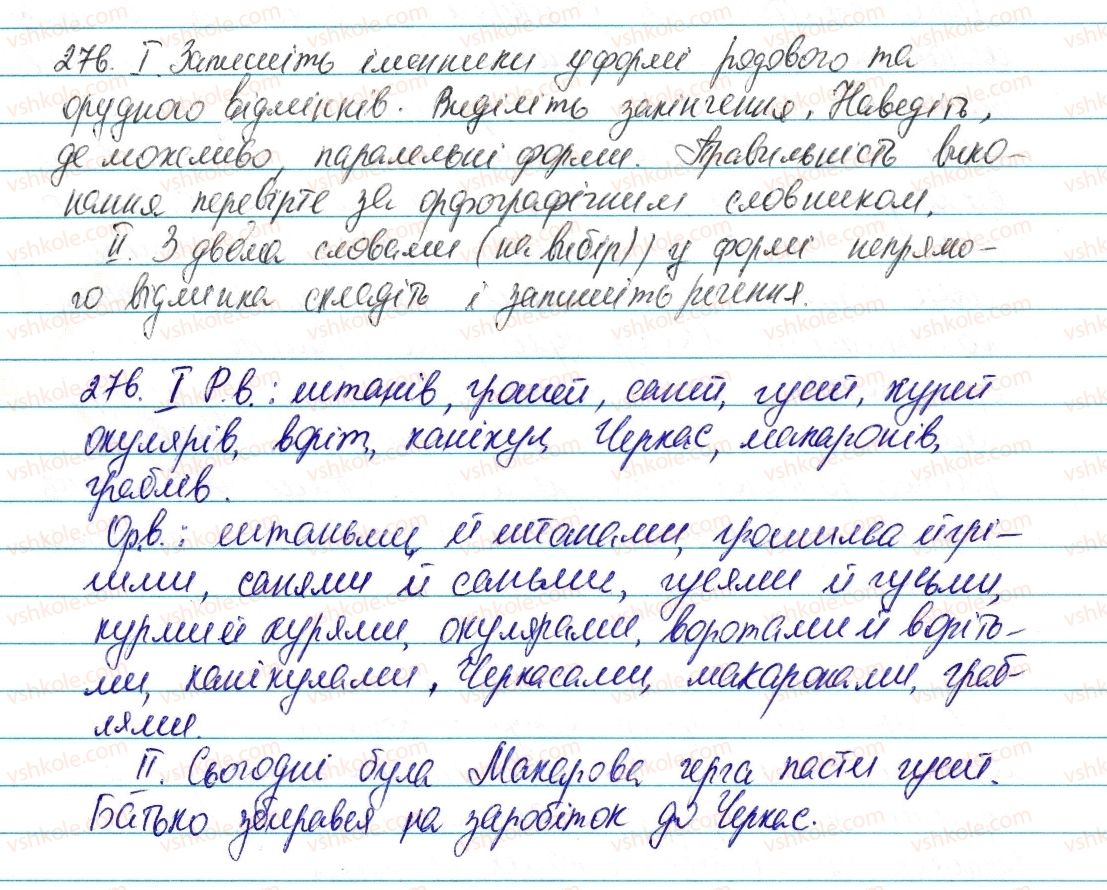 276. І Запишіть іменники у формі родового та
орудного відмінків. Виділіть закінчення. Наведіть,
де можливо, паралельні форми. Правильність вико-
нання перевірте за орфографічним словником.
ІІ. З двома словами (на вибір) у формі непрямо-
го відмінка складіть і запишіть речення.
276. І Р.в.: штанів, грошей, саней, гусей, курей
окулярів, воріт, канікул, Черкас, макаронів,
граблів.
Ор.в.: штаньми й штанами, грошима й грі-
шми, санями й саньми, гусями й гусьми,
курми й курями, окулярами, воротами й воріть-
ми, канікулами, Черкасами, макаронами, граб-
лями.
ІІ. Сьогодні була Макарова черга пасти гусей.
Батько збирався на заробіток до Черкас.